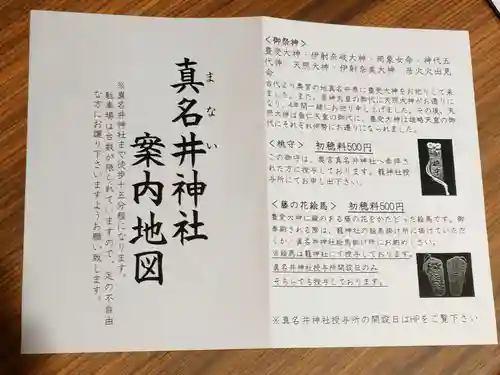 まない
真名井神社
案内地図
※真名井神社まで徒歩十五分程になります。
駐車場は台数が限られていますので、足の不自由
な方にお譲り下さいますようお願い致します。
<御祭神>
豊受大神・伊射奈岐大神・罔象女命・神代五
代神 天照大神・伊射奈美大神 彦火火出見
命
古代より奥宮の地真名井原に豊受大神をお祀りして来
ました。また、崇神天皇の御代に天照大神がお遷りに
なり、4年間一緒にお祀り申し上げました。その後、天
照大神は垂仁天皇の御代に、豊受大神は雄略天皇の御
代にそれぞれ伊勢にお遷りになられました。
<桃守> 初穂料500円
この御守は、奥宮真名井神社へ参拝さ
れた方に授与しております。籠神社授
与所にてお申し出下さい。
桃守
<藤の花絵馬> 初穂料500円
豊受大神に縁のある藤の花をかたどった絵馬です。御
奉納される際は、籠神社の絵馬掛け所に掛けていただ
くか、真名井神社絵馬掛け所にお納めください。
※絵馬は籠神社にて授与しております。
真名井神社授与所開設日のみ
そちらでも授与しております。
※真名井神社授与所の開設日はHPをご覧下さい